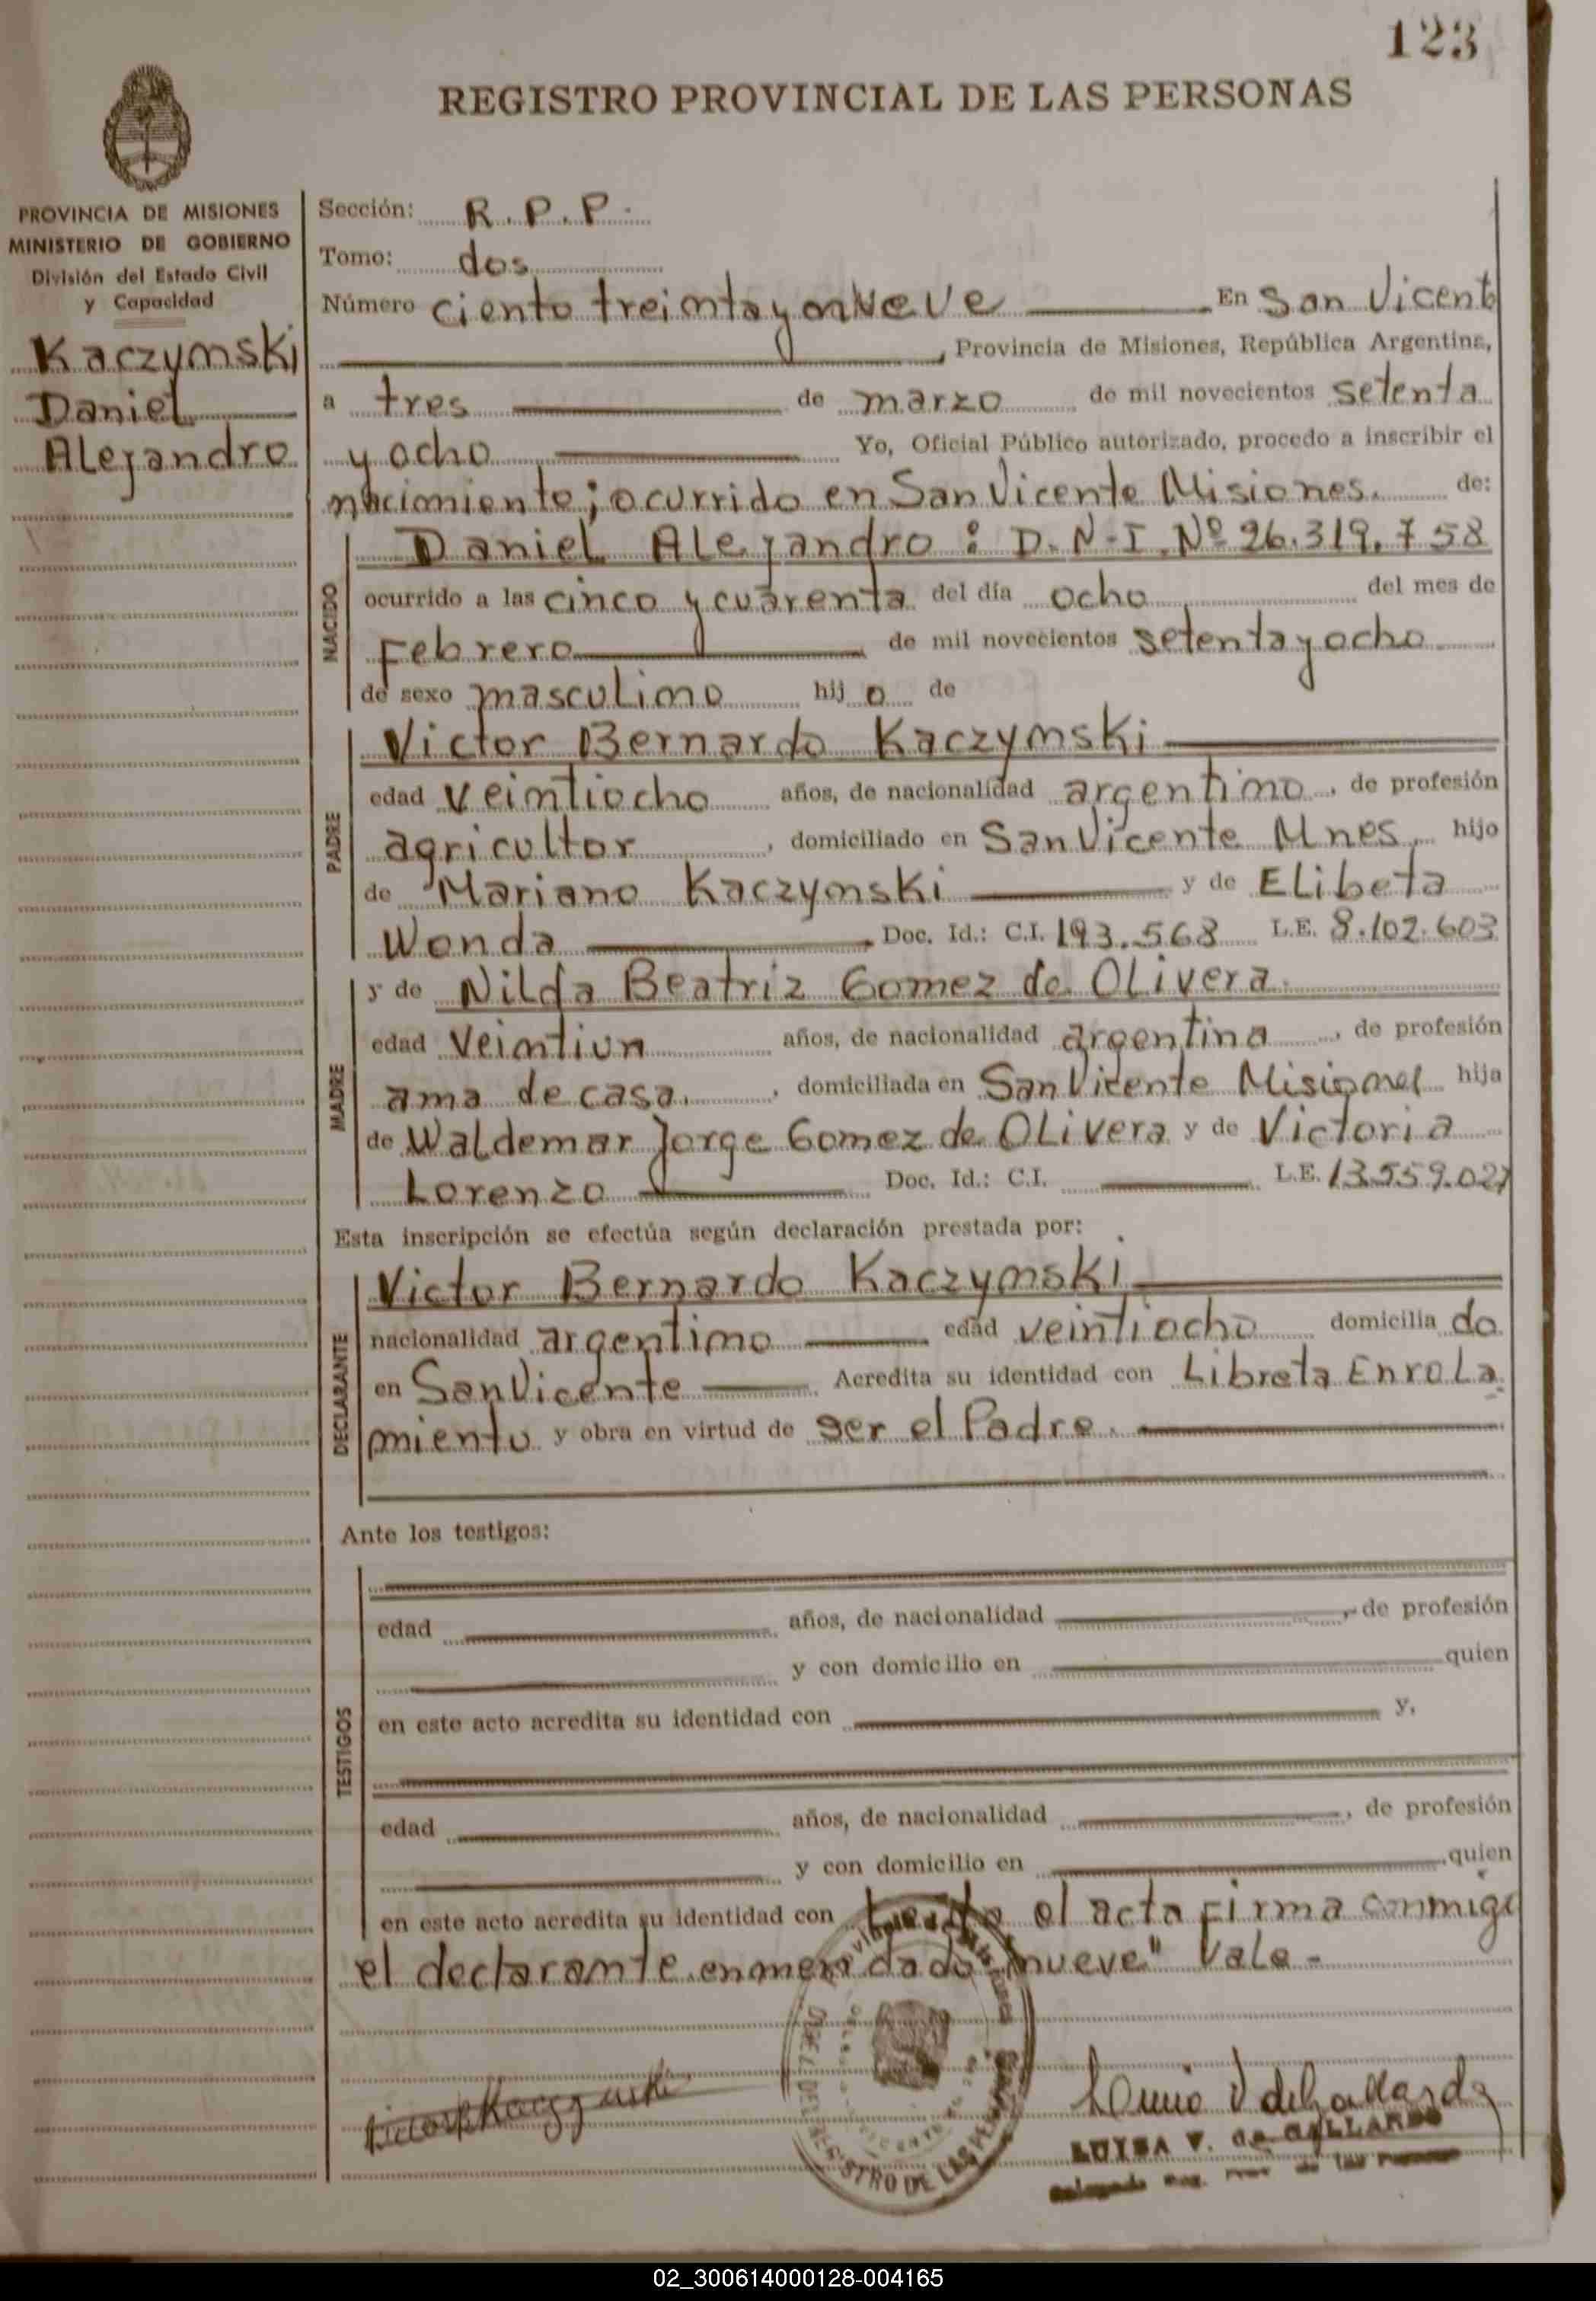 123
REGISTRO PROVINCIAL DE LAS PERSONAS
PROVINCIA DE MISIONES
MINISTERIO DE GOBIERNO
División del Estado Civil
y Capacidad
Kaczymski
Daniel
Alejandro
Sección: R.P.P.
Tomo: dos
Número ciento treinta y nueve En San Vicente
, Provincia de Misiones, República Argentina,
a tres de marzo de mil novecientos setenta
y ocho Yo, Oficial Público autorizado, procedo a inscribir el
nacimiento; ocurrido en San Vicente Misiones. de:
NACIDO
Daniel Alejandro: D.N.I. Nº 26.319.758
ocurrido a las cinco y cuarenta del día ocho del mes de
Febrero de mil novecientos setenta y ocho
de sexo masculino hij o de
PADRE
Victor Bernardo Kaczymski
edad veintiocho años, de nacionalidad argentino, de profesión
agricultor, domiciliado en San Vicente Mnes, hijo
de Mariano Kaczymski y de Elibeta
Wonda Doc. Id.: C.I. 193.568 L.E. 8.102.603
MADRE
y de Nilda Beatriz Gomez de Olivera
edad veintiun años, de nacionalidad argentina, de profesión
ama de casa, domiciliada en San Vicente Misiones hija
de Waldemar Jorge Gomez de Olivera y de Victoria
Lorenzo Doc. Id.: C.I. L.E. 13.559.027
Esta inscripción se efectúa según declaración prestada por:
DECLARANTE
Victor Bernardo Kaczymski
nacionalidad argentino edad veintiocho domicilia do
en San Vicente Acredita su identidad con Libreta Enrola
miento y obra en virtud de ser el Padre.
Ante los testigos:
TESTIGOS
edad años, de nacionalidad , de profesión
y con domicilio en quien
en este acto acredita su identidad con y,
edad años, de nacionalidad , de profesión
y con domicilio en quien
en este acto acredita su identidad con Leido el acta firma conmigo
el declarante. enmendado "nueve" Vale -
REGISTRO DE LAS PERSONAS
LUISA V. de GALLARDO
02_300614000128-004165